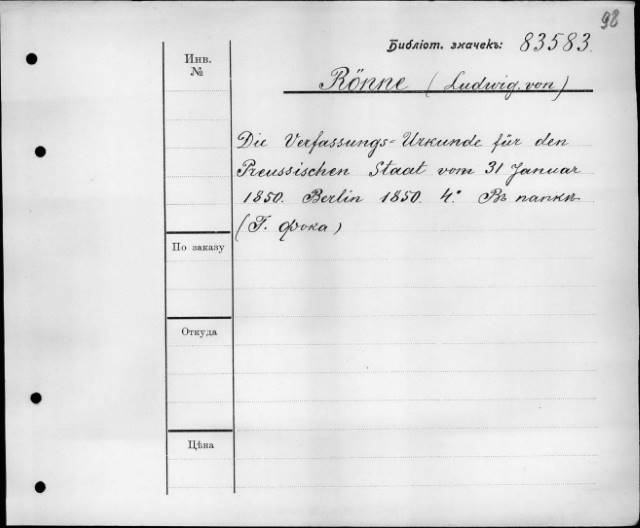 98
Библіот. значекъ: 83583.
Инв.
№
Rönne (Ludwig von)
Die Verfassungs-Urkunde für den
Preussischen Staat vom 31 Januar
1850. Berlin 1850. 4.° Въ папкѣ
(Г. Фока)
По заказу
Откуда
Цѣна